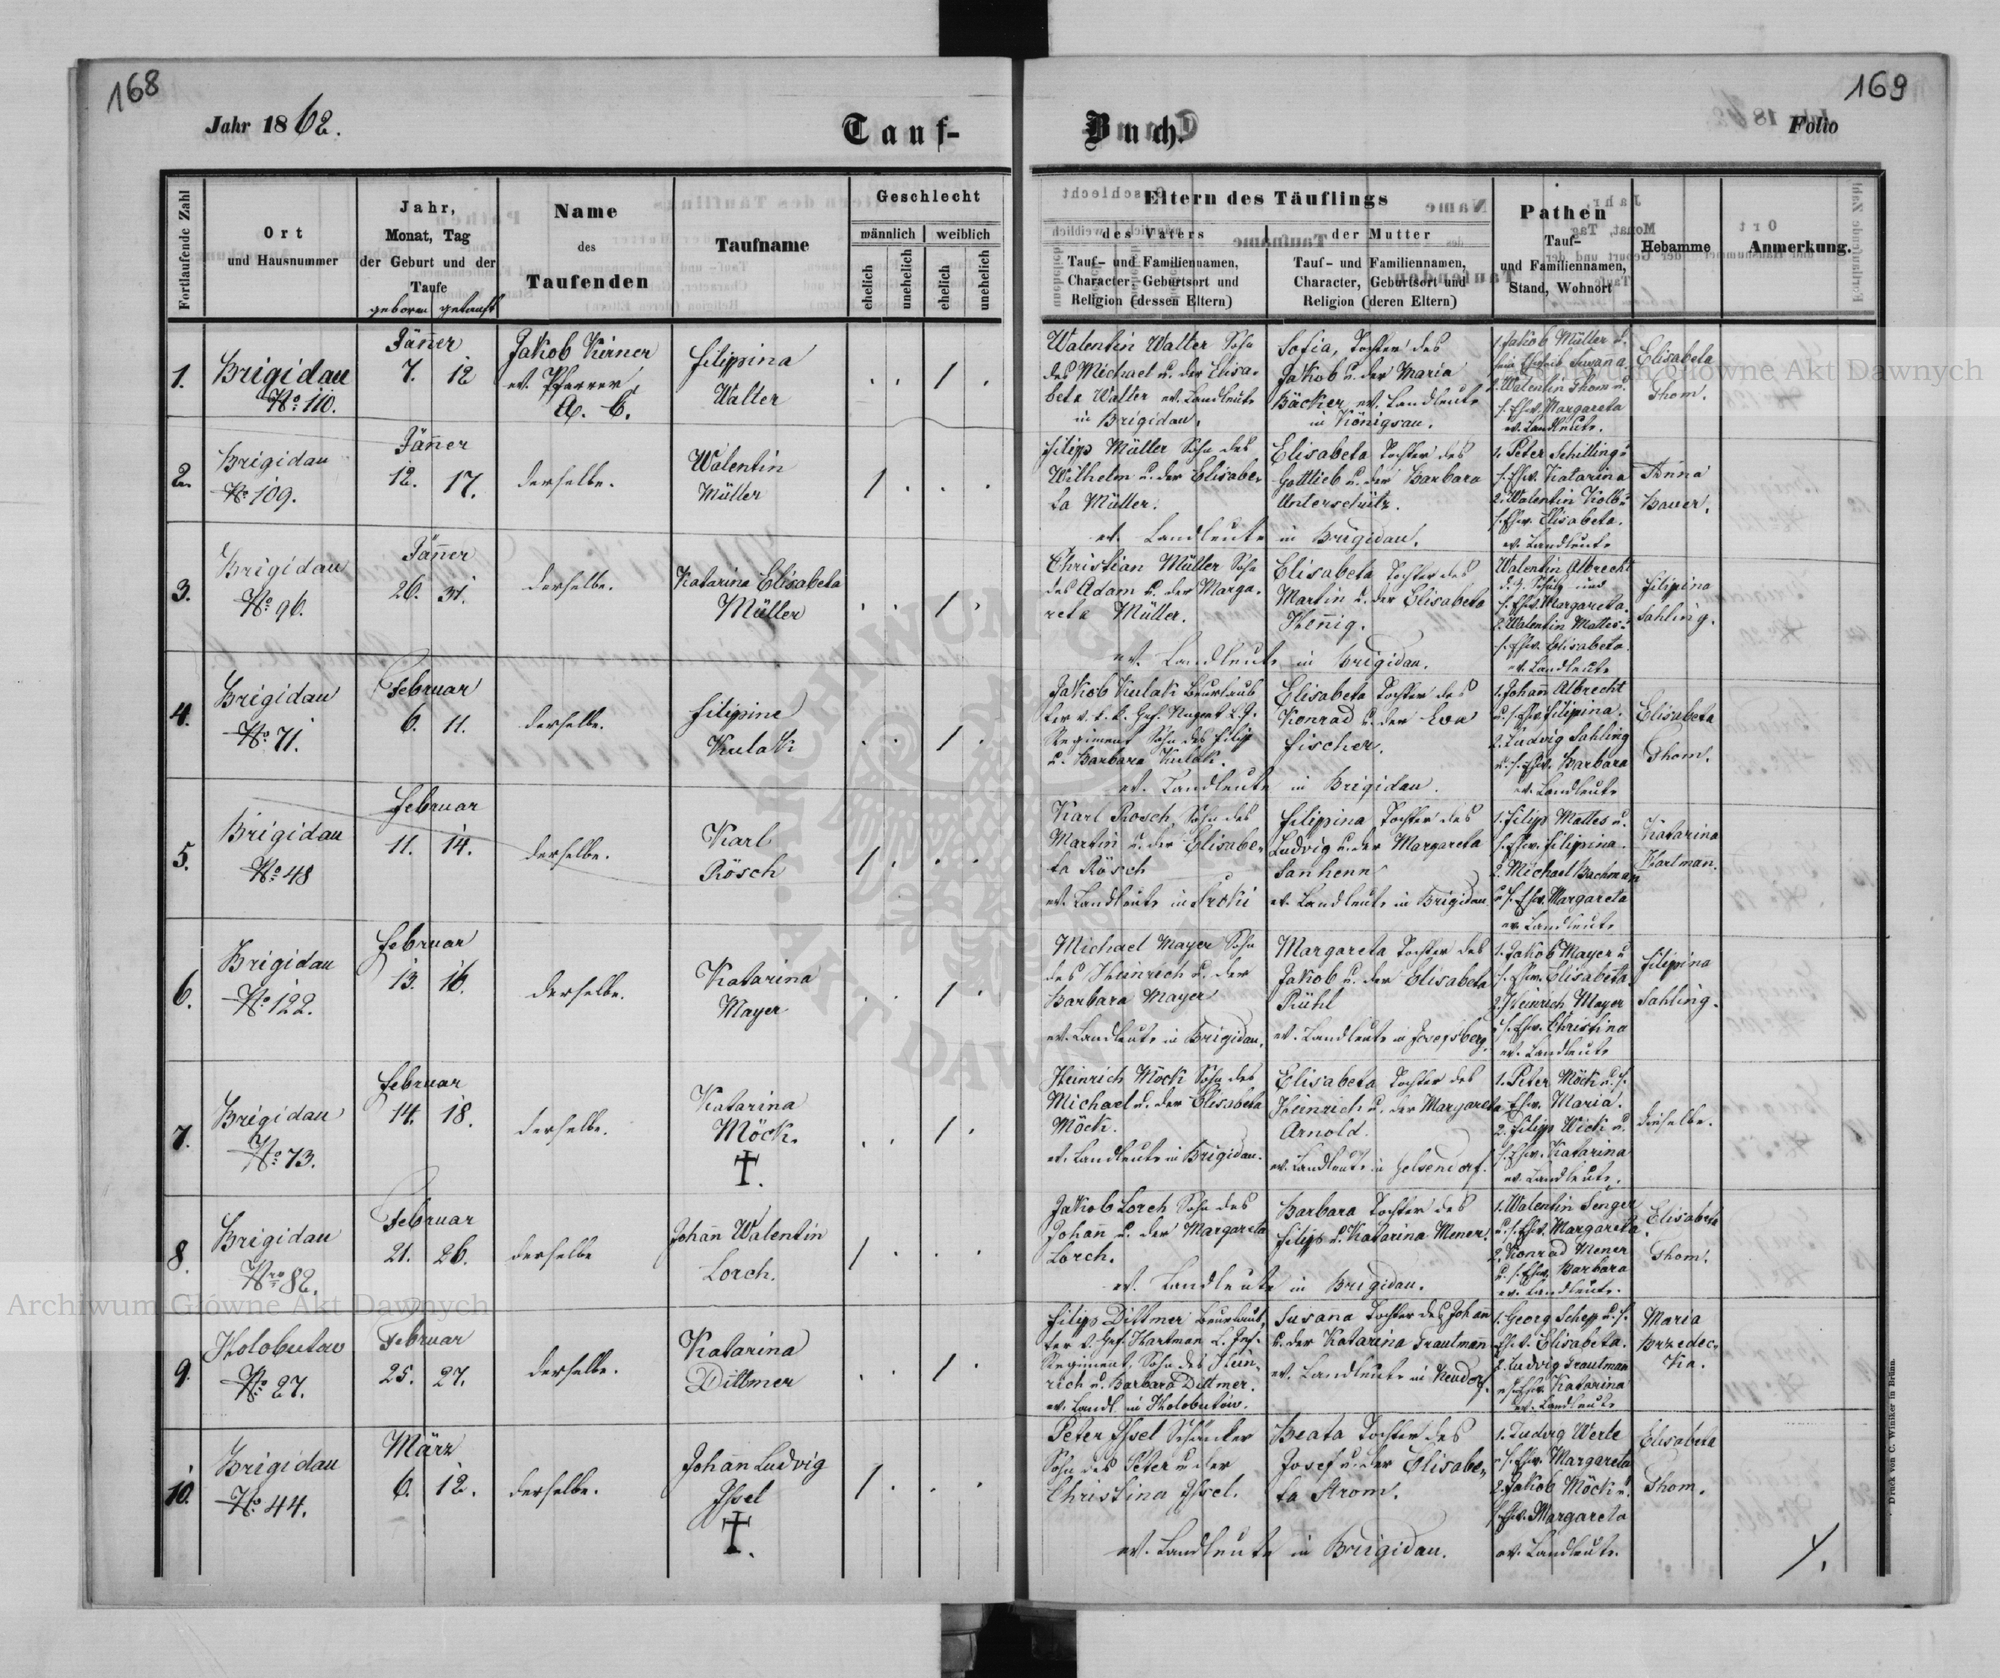 168
169
Jahr 1862.
Tauf-
Buch.
Folio
Fortlaufende Zahl
Ort
und Hausnummer
Jahr,
Monat, Tag
der Geburt und der
Taufe
geboren getauft
Name
des
Taufenden
Taufname
Geschlecht
männlich
weiblich
ehelich
unehelich
ehelich
unehelich
Eltern des Täuflings
des Vaters
Tauf- und Familiennamen,
Character, Geburtsort und
Religion (dessen Eltern)
der Mutter
Tauf- und Familiennamen,
Character, Geburtsort und
Religion (deren Eltern)
Pathen
Tauf-
und Familiennamen,
Stand, Wohnort
Hebamme
Anmerkung.
1.
Brigidau
No 110.
Jänner
7. 12
Jakob Kirner
ev. Pfarrer
A. C.
Filippina
Walter
Walentin Walter Sohn
des Michael u. der Elisa-
beta Walter ev. Landleute
in Brigidau.
Sofia, Tochter des
Jakob u. der Maria
Bäcker, ev. Landleute
in Königsau.
1. Jakob Müller u.
Susana
2. Walentin Thom u.
s. Ehw. Margareta
ev. Landleute.
Elisabeta
Thom.
2.
Brigidau
No 109.
Jänner
12. 17.
derselbe.
Walentin
Müller
Filipp Müller Sohn des
Wilhelm u. der Elisabe-
ta Müller.
ev. Landleute in Brigidau.
Elisabeta Tochter des
Gottlieb u. der Barbara
Unterschütz.
1. Peter Schilling u
s. Ehw. Katarina
2. Walentin Kolb u
s. Ehw. Elisabeta.
ev. Landleute
Anna
Bauer.
3.
Brigidau
No 96.
Jänner
26. 31.
derselbe.
Katarina Elisabeta
Müller
Christian Müller Sohn
des Adam u. der Marga-
reta Müller.
ev. Landleute in Brigidau.
Elisabeta Tochter des
Martin u. der Elisabeta
Hennig.
Walentin Albrecht
und
s. Ehw. Margareta.
2. Walentin Mattes u
s. Ehw. Elisabeta.
ev. Landleute
Filipina
Sahling.
4.
Brigidau
No 71.
Februar
6. 11.
derselbe.
Filipine
Kulaki
Jakob Kulaki Beurlaub
ter
Regiment Sohn des Filip
u. Barbara Kulaki.
ev. Landleute in Brigidau.
Elisabeta Tochter des
Konrad u. der Eva
Fischer.
1. Johan Albrecht
u. s. Ehw. Filipina.
2. Ludwig Sahling
u. s. Ehw. Barbara
ev. Landleute
Elisabeta
Thom.
5.
Brigidau
No 48
Februar
11. 14.
derselbe.
Karl
Rösch
Karl Rösch Sohn des
Martin u. der Elisabe-
ta Rösch
ev. Landleute in
Filippina Tochter des
Ludwig u. der Margareta
Sanhenn
ev. Landleute in Brigidau
1. Filipp Mattes u.
s. Ehw. Filipina.
2. Michael Bachman
u s. Ehw. Margareta
ev. Landleute
Katarina
Hartman.
6.
Brigidau
No 122.
Februar
13. 16.
derselbe.
Katarina
Mayer
Michael Mayer Sohn
des Heinrich u. der
Barbara Mayer
ev. Landleute in Brigidau.
Margareta Tochter des
Jakob u. der Elisabeta
Rühl
ev. Landleute in Josefsberg.
1. Jakob Mayer u
s. Ehw. Elisabeta.
2. Heinrich Mayer
u s. Ehw. Christina
ev. Landleute
Filipina
Sahling.
7.
Brigidau
No 73.
Februar
14. 18.
derselbe.
Katarina
Möck.
Heinrich Möck Sohn des
Michael u. der Elisabeta
Möck.
ev. Landleute in Brigidau.
Elisabeta Tochter des
Heinrich u. der Margareta
Arnold.
ev. Landleute in Gelsendorf.
1. Peter Möck u. s.
Ehw. Maria.
2. Filipp Wick u.
s. Ehw. Katarina
ev. Landleute.
dieselbe.
8.
Brigidau
Nro 82.
Februar
21. 26.
derselbe
Johann Walentin
Lorch.
Jakob Lorch Sohn des
Johann u. der Margareta
Lorch.
ev. Landleute in Brigidau.
Barbara Tochter des
Filipp u. Katarina Mener.
1. Walentin Senger
u. s. Ehw. Margareta.
2. Konrad Mener
u. s. Ehw. Barbara
ev. Landleute.
Elisabeta
Thom.
9.
Holobutow
No 27.
Februar
25. 27.
derselbe.
Katarina
Dittmer
Filipp Dittmer Beurlaub-
ter Hartman
Regiment, Sohn des Hein-
rich u. Barbara Dittmer.
ev. Landl. in Holobutow.
Susanna Tochter des Johann
u. der Katarina Trautmann
ev. Landleute in Neudorf.
1. Georg Schepp u. s.
Elisabeta.
2. Ludwig Trautman
u s. Ehw. Katarina
ev. Landleute
Maria
Brzedec-
ka.
10.
Brigidau
No 44.
März
6. 12.
derselbe.
Johan Ludwig
Issel
Peter Issel Schänker
Sohn des Peter u der
Christina Issel.
ev. Landleute in Brigidau.
Beata Tochter des
Josef u. der Elisabe-
ta Strom.
1. Ludwig Werle
u s. Ehw. Margareta
2. Jakob Möck u.
s. Ehw. Margareta
ev. Landleute.
Elisabeta
Thom.
Druck von C. Winiker in Brünn.
Archiwum Główne Akt Dawnych
Archiwum Główne Akt Dawnych